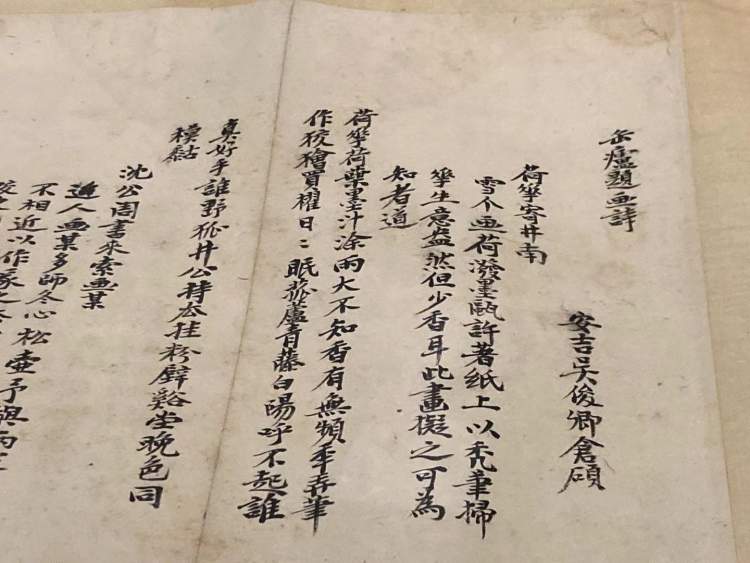 缶廬題画詩
安吉吳俊卿倉碩
荷華寄井南
雪个画荷潑墨甌許著紙上以禿筆掃
華生意盎然但少香耳此畫擬之可為
知者道
荷華荷葉墨汁涂雨大不知香有無頻年弄筆
作狡獪買櫂日〻眠菰蘆青藤白陽呼不起誰
真好手誰野狐井公持去挂粉壁谿堂晚色同
模糊
沈公周書來索画某
近人画某多師冬心松壺予與兩
不相近以作篆之